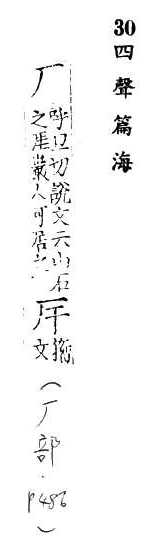 30四聲篇海
厂呼旦切説文云山石
之厓巖人可居也厈籀
文(厂部·P486)